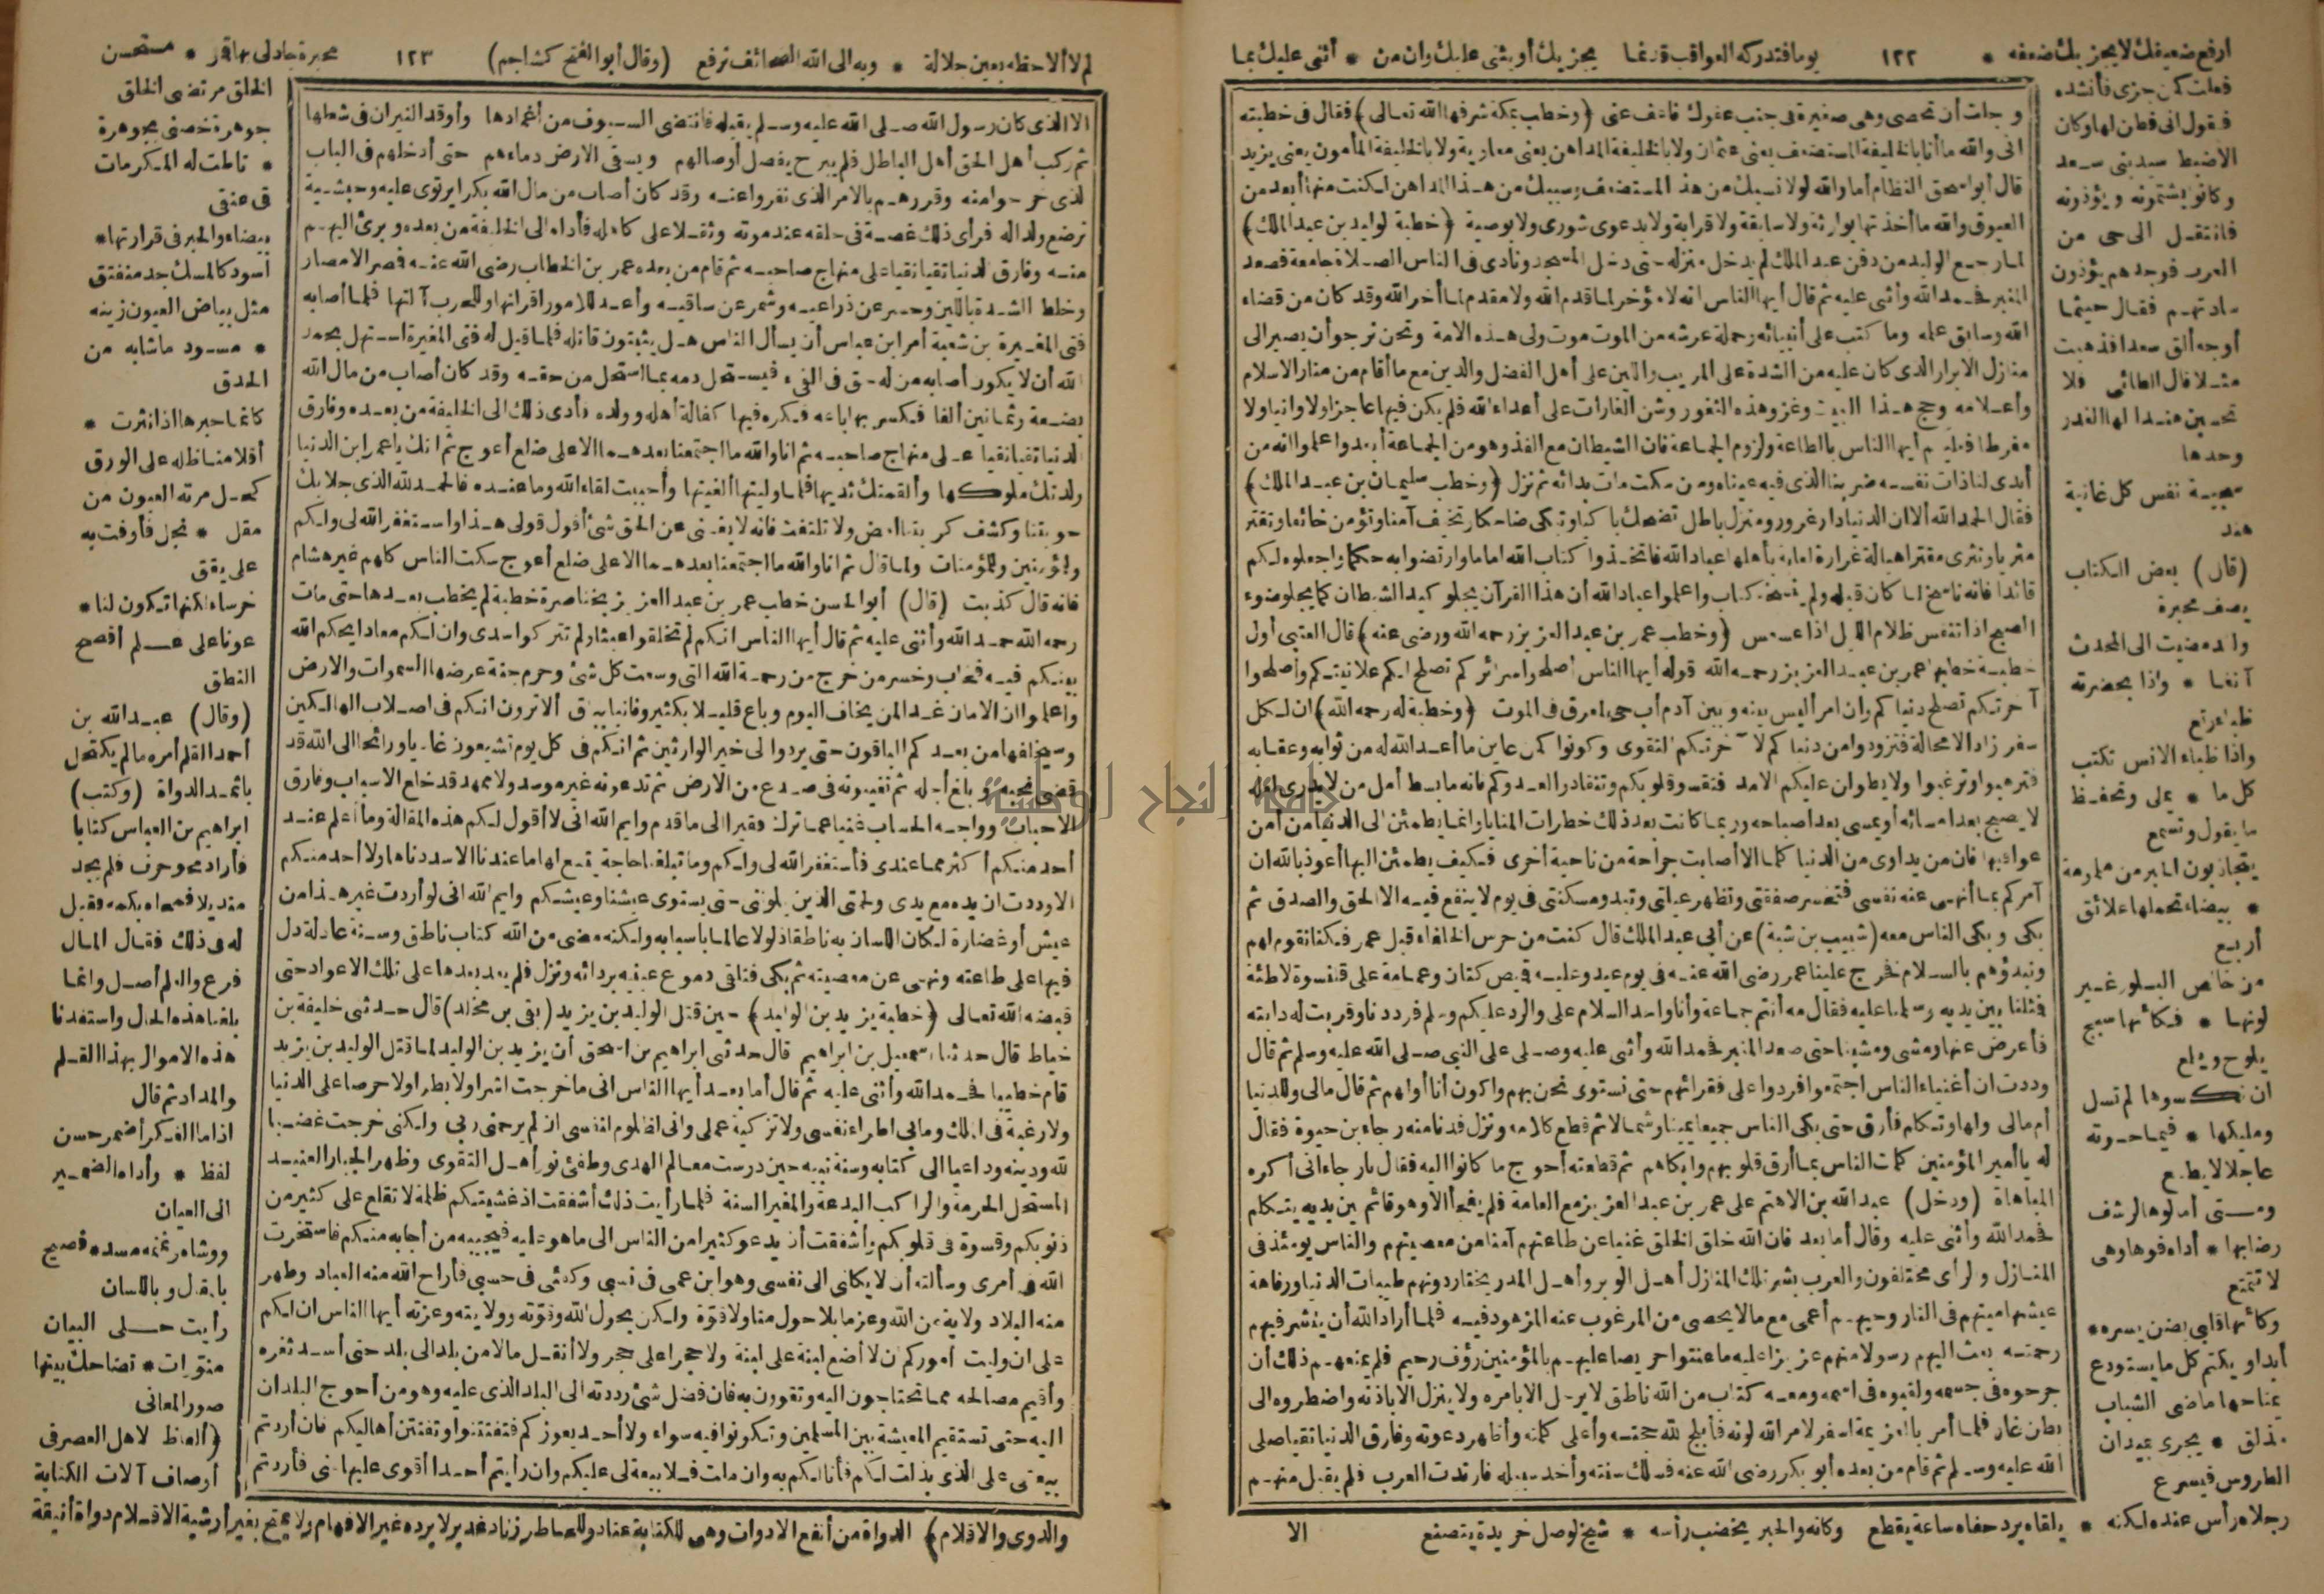 ارفع ضعيفك لا يحربك ضعفه * ١٢٢ يوما فتدركه العواقب قد نما يجزيك أو يثني عليك وان من * أثنى عليك بما
فعلت كمن جزى فأنشده
فقول انى فطن لها وكان
الاضبط سيد بنى سعد
وكانوا يشتمونه ويؤذونه
فانتقل الى حى من
العرب فوجدهم يؤذون
ساداتهم فقال حيثما
أوجه ألق سعدا فذهبت
مثلا قال الطائى فلا
تحسبن هندا لها الغدر
وحدها
سجية نفس كل غانية
هند
(قال) بعض الكتاب
يصف محبرة
ولقد مضيت الى المحدث
آنفا * واذا بحضرته
ظباء رتع
واذا ظباء الانس تكتب
كل ما * يملى وتحفظ
ما يقول وتسمع
يتجاذبون الحبر من ملمومة
* بيضاء تحملها علائق
أربع
من خالص البلور غير
لونها * فكأنها سبج
يلوح ويلمع
ان نكسوها لم تسل
ومليكها * فيما حوته
عاجلا لا يطمع
ومتى أمالوها لرشف
رضابها * أداه فوها وهى
لا تتمنع
وكأنها قلبى يضن بسره *
أبدا ويكتم كل ما يستودع
يمتاحها ماضى الشباة
مذلق * يجرى بميدان
الطروس فيسرع
رجلاه رأس عنده لكنه * يلقاه برد حفاه ساعة يقطع وكأنه والحبر يخضب رأسه * شيخ لوصل خريدة يتصنع الا
وجلت أن تحصى وهى صغيرة فى جنب عفوك فاعف عنى (وخطب بمكة شرفها الله تعالى) فقال فى خطبته
انى والله ما أنا بالخليفة المستضعف يعنى عثمان ولا بالخليفة المداهن يعنى معاوية ولا بالخليفة المأمون يعنى يزيد
قال أبو اسحق النظام أما والله لولا نسبك من هذا المستضعف وسببك من هذا المداهن لكنت منها أبعد من
العيوق والله ما أخذتها بوراثة ولا سابقة ولا قرابة ولا بدعوى شورى ولا بوصية (خطبة لوليد بن عبد الملك)
لما رجع الوليد من دفن عبد الملك لم يدخل منزله حتى دخل المسجد ونادى فى الناس الصلاة جامعة فصعد
المنبر فحمد الله وأثنى عليه ثم قال أيها الناس انه لا مؤخر لما قدم الله ولا مقدم لما أخر الله وقد كان من قضاء
الله وسابق علمه وما كتب على أنبيائه وحملة عرشه من الموت موت ولى هذه الامة ونحن نرجو أن يصير الى
منازل الابرار الذى كان عليه من الشدة على المريب واللين على أهل الفضل والدين مع ما أقام من منار الاسلام
وأعلامه وحج هذا البيت وغزو هذه الثغور وشن الغارات على أعداء الله فلم يكن فيها عاجزا ولا وانيا ولا
مفرطا فعليكم أيها الناس بالطاعة ولزوم الجماعة فان الشيطان مع الفذ وهو من الجماعة أبعد واعلموا انه من
أبدى لنا ذات نفسه ضربنا الذى فيه عيناه ومن سكت مات بدائه ثم نزل (وخطب سليمان بن عبد الملك)
فقال الحمد لله ألا ان الدنيا دار غرور ومنزل باطل تضحك باكيا وتبكى ضاحكا وتخيف آمنا وتؤمن خائفا وتفقر
مثريا وتثرى مقترا ميالة غرارة لعابة بأهلها عباد الله فاتخذوا كتاب الله اماما وارتضوا به حكما واجعلوه لكم
قائدا فانه ناسخ لما كان قبله ولم ينسخه كتاب واعلموا عباد الله أن هذا القرآن يجلو كيد الشيطان كما يجلو ضوء
الصبح اذا تنفس ظلام الليل اذا عسعس (وخطب عمر بن عبد العزيز رحمه الله ورضى عنه) قال العتبى أول
خطبة خطبها عمر بن عبد العزيز رحمه الله قوله أيها الناس أصلحوا سرائركم تصلح لكم علانيتكم وأصلحوا
آخرتكم تصلح دنياكم وان امرأ ليس بينه وبين آدم أب حى لمعرق فى الموت (وخطبة له رحمه الله) ان لكل
سفر زادا لا محالة فتزودوا من دنياكم لآخرتكم التقوى وكونوا كمن عاين ما أعد الله له من ثوابه وعقابه
فترهبوا وترغبوا ولا يطولن عليكم الامد فتقسو قلوبكم وتنقادوا لعدوكم فانه ما بسط أمل من لا يدرى لعله
لا يصبح بعد امسائه أو يمسى بعد اصباحه وربما كانت بعد ذلك خطرات المنايا وانما يطمئن الى الدنيا من أمن
عواقبها فان من يداوى من الدنيا كلما الا أصابت جراحة من ناحية أخرى فكيف يطمئن اليها أعوذ بالله ان
آمركم بما أنهى عنه نفسى فتخسر صفقتى وتظهر عيلتى وتبدو مسكنتى فى يوم لا ينفع فيه الا الحق والصدق ثم
بكى وبكى الناس معه (شبيب بن شبة) عن أبى عبد الملك قال كنت من حرس الخلفاء قبل عمر فكنا نقوم لهم
ونبدؤهم بالسلام فخرج علينا عمر رضى الله عنه فى يوم عيد وعليه قميص كتان وعمامة على قلنسوة لاطئة
فمثلنا بين يديه وسلمنا عليه فقال مه أنتم جماعة وأنا واحد السلام على والرد عليكم وسلم فرددنا وقربت له دابته
فأعرض عنها ومشى ومشينا حتى صعد المنبر فحمد الله وأثنى عليه وصلى على النبى صلى الله عليه وسلم ثم قال
وددت ان أغنياء الناس اجتمعوا فردوا على فقرائهم حتى نستوى نحن بهم وأكون أنا أولهم ثم قال مالى وللدنيا
أم مالى ولها وتكلم فأرق حتى بكى الناس جميعا يمينا وشمالا ثم قطع كلامه ونزل فدنا منه رجاء بن حيوة فقال
له يا أمير المؤمنين كلمت الناس بما أرق قلوبهم وأبكاهم ثم قطعته أحوج ما كانوا اليه فقال يا رجاء انى أكره
المباهاة (ودخل) عبد الله بن الاهتم على عمر بن عبد العزيز مع العامة فلم يفجأ الا وهو قائم بين يديه يتكلم
فحمد الله وأثنى عليه وقال أما بعد فان الله خلق الخلق غنيا عن طاعتهم آمنا من معصيتهم والناس يومئذ فى
المنازل والرأى مختلفون والعرب بشر تلك المنازل أهل الوبر وأهل المدر يحتاز دونهم طيبات الدنيا ورفاهة
عيشها ميتهم فى النار وحيهم أعمى مع مالا يحصى من المرغوب عنه المزهود فيه فلما أراد الله أن ينشر فيهم
رحمته بعث اليهم رسولا منهم عزيزا عليه ما عنتوا حريصا عليهم بالمؤمنين رؤف رحيم فلم يمنعهم ذلك أن
جرحوه فى جسمه ولقبوه فى اسمه ومعه كتاب من الله ناطق لا يرحل الا بأمره ولا ينزل الا باذنه واضطروه الى
بطن غار فلما أمر بالعزيمة أسفر لامر الله لونه فأبلج لله حجته وأعلى كلمته وأظهر دعوته وفارق الدنيا تقيا صلى
الله عليه وسلم ثم قام من بعده أبو بكر رضى الله عنه فسلك سنته وأخذ سبيله فارتدت العرب فلم يقبل منهم
لم لا ألاحظه بعين جلالة * وبه الى الله الصحائف ترفع (وقال أبو الفتح كشاجم) ١٢٣ محبرة جاد لى بها قمر * مستحسن
الخلق مرتضى الخلق
جوهرة خصنى بجوهرة
* ناطت له المكرمات
فى عنقى
بيضاء والحبر فى قرارتها *
أسود كالمسك جد منفتق
مثل بياض العيون زينه
* مسود ما شابه من
الحدق
كانما حبرها اذا نثرت *
أقلامنا ظله على الورق
كحل مرته العيون من
مقل * نجل فأوفت به
على يقق
خرساء لكنها تكون لنا *
عونا على علم أفصح
النطق
(وقال) عبد الله بن
أحمد القلم أمره ما لم يكتحل
باثمد الدواة (وكتب)
ابراهيم بن العباس كتابا
فأراد محو حرف فلم يجد
منديلا فمحاه بكمه فقيل
له فى ذلك فقال المال
فرع والقلم أصل وانما
بلغنا هذه الحال واستفدنا
هذه الاموال بهذا القلم
والمداد ثم قال
اذا ما الفكر أضمر حسن
لفظ * وأداه الضمير
الى العيان
ووشاه ونمنمه مسد فصيح
بالمقال وباللسان
رأيت حلى البيان
منورات * تضاحك بينها
صور المعانى
(ألفاظ لاهل العصر فى
أوصاف آلات الكتابة
والدوى والاقلام) الدواة من أنفع الادوات وهى للكتابة عتاد وللخاطر زناد غدير لا يرده غير الافهام ولا يمتح بغير أرشية الاقلام دواة أنيقة
الا الذى كان رسول الله صلى الله عليه وسلم يقبله فانتضى السيوف من أغمادها وأوقد النيران فى شعلها
ثم ركب أهل الحق أهل الباطل فلم يبرح يفصل أوصالهم ويسقى الارض دماءهم حتى أدخلهم فى الباب
لذى خرجوا منه وقررهم بالامر الذى نفروا عنه وقد كان أصاب من مال الله بكرا يرتوى عليه وحبشية
ترضع ولدا له فرأى ذلك غصة فى حلقه عند موته وثقلا على كاهله فأداه الى الخليفة من بعده وبرئ اليهم
منه وفارق الدنيا تقيا نقيا على منهاج صاحبه ثم قام من بعده عمر بن الخطاب رضى الله عنه فمصر الامصار
وخلط الشدة باللين وحسر عن ذراعيه وشمر عن ساقيه وأعد للامور أقرانها وللحرب آلتها فلما أصابه
فتى المغيرة بن شعبة أمر ابن عباس أن يسأل الناس هل يثبتون قاتله فلما قيل له فتى المغيرة استهل بحمد
الله أن لا يكون أصابه من له حق فى الفىء فيستحل دمه بما استحل من حقه وقد كان أصاب من مال الله
بضعة وثمانين ألفا فكسر بها رباعه فكره فيها كفالة أهله وولده فأدى ذلك الى الخليفة من بعده وفارق
الدنيا تقيا نقيا على منهاج صاحبه ثم انا والله ما اجتمعنا بعدهما الا على ضلع أعوج ثم انك يا عمر ابن الدنيا
ولدتك ملوكها وألقمتك ثديها فلما وليتها ألقيتها وأحببت لقاء الله وما عنده فالحمد لله الذى جلا بك
حوبتنا وكشف كربتنا امض ولا تلتفت فانه لا يغنى عن الحق شئ أقول قولى هذا وأستغفر الله لى ولكم
وللمؤمنين وللمؤمنات ولما قال ثم انا والله ما اجتمعنا بعدهما الا على ضلع أعوج سكت الناس كلهم غير هشام
فانه قال كذبت (قال) أبو الحسن خطب عمر بن عبد العزيز بخناصرة خطبة لم يخطب بعدها حتى مات
رحمه الله حمد الله وأثنى عليه ثم قال أيها الناس انكم لم تخلقوا عبثا ولم تتركوا سدى وان لكم معادا يحكم الله
بينكم فيه فخاب وخسر من خرج من رحمة الله التى وسعت كل شئ وحرم جنة عرضها السموات والارض
واعلموا ان الامان غدا لمن يخاف اليوم وباع قليلا بكثير وفانيا بباق ألا ترون انكم فى أصلاب الهالكين
وسيخلفها من بعدكم الباقون حتى يردوا الى خير الوارثين ثم انكم فى كل يوم تشيعون غاديا ورائحا الى الله قد
قضى نحبه وبلغ أجله ثم تغيبونه فى صدع من الارض ثم تدعونه غير موسد ولا ممهد قد خلع الاسباب وفارق
الاحباب وواجه الحساب غنيا عما ترك فقيرا الى ما قدم وايم الله انى لا أقول لكم هذه المقالة وما أعلم عند
أحد منكم أكثر مما عندى فأستغفر الله لى ولكم وما تبلغنا حاجة يتسع لها ما عندنا الا سددناها ولا أحد منكم
الا وددت ان يده مع يدى ولحمتى الذين يلونى حتى يستوى عيشنا وعيشكم وايم الله انى لو أردت غير هذا من
عيش أو غضارة لكان اللسان به ناطقا ذلولا عالما بأسبابه ولكنه مضى من الله كتاب ناطق وسنة عادلة دل
فيها على طاعته ونهى عن معصيته ثم بكى فتلقى دموع عينيه بردائه ونزل فلم يعد بعدها على تلك الاعواد حتى
قبضه الله تعالى (خطبة يزيد بن الوليد) حين قتل الوليد بن يزيد (بقى بن مخلد) قال حدثنى خليفة بن
خياط قال حدثنا اسمعيل بن ابراهيم قال حدثنى ابراهيم بن اسحق أن يزيد بن الوليد لما قتل الوليد بن يزيد
قام خطيبا فحمد الله وأثنى عليه ثم قال أما بعد أيها الناس انى ما خرجت أشرا ولا بطرا ولا حرصا على الدنيا
ولا رغبة فى الملك وما بى اطراء نفسى ولا تزكية عملى وانى لظلوم لنفسى ان لم يرحمنى ربى ولكنى خرجت غضبا
لله ودينه وداعيا الى كتابه وسنة نبيه حين درست معالم الهدى وطفئ نور أهل التقوى وظهر الجبار العنيد
المستحل الحرمة والراكب البدعة والمغير السنة فلما رأيت ذلك أشفقت اذ غشيتكم ظلمة لا تقلع على كثير من
ذنوبكم وقسوة فى قلوبكم وأشفقت أن يدعو كثيرا من الناس الى ما هو عليه فيجيبه من أجابه منكم فاستخرت
الله فى أمرى وسألته أن لا يكلنى الى نفسى وهو ابن عمى فى نسبى وكفئى فى حسبى فأراح الله منه العباد وطهر
منه البلاد ولاية من الله وعزما بلا حول منا ولا قوة ولكن بحول الله وقوته وولايته وعزته أيها الناس ان لكم
على ان وليت أموركم أن لا أضع لبنة على لبنة ولا حجرا على حجر ولا أنقل مالا من بلد الى بلد حتى أسد ثغره
وأقيم مصالحه مما تحتاجون اليه وتقوون به فان فضل شئ رددته الى البلد الذى يليه وهو من أحوج البلدان
اليه حتى تستقيم المعيشة بين المسلمين وتكونوا فيه سواء ولا أحد بعوزكم فتفتتنوا وتفتتن أهاليكم فان أردتم
بيعتى على الذى بذلت لكم فأنا لكم به وان ملت فلا بيعة لى عليكم وان رأيتم أحدا أقوى عليها منى فأردتم